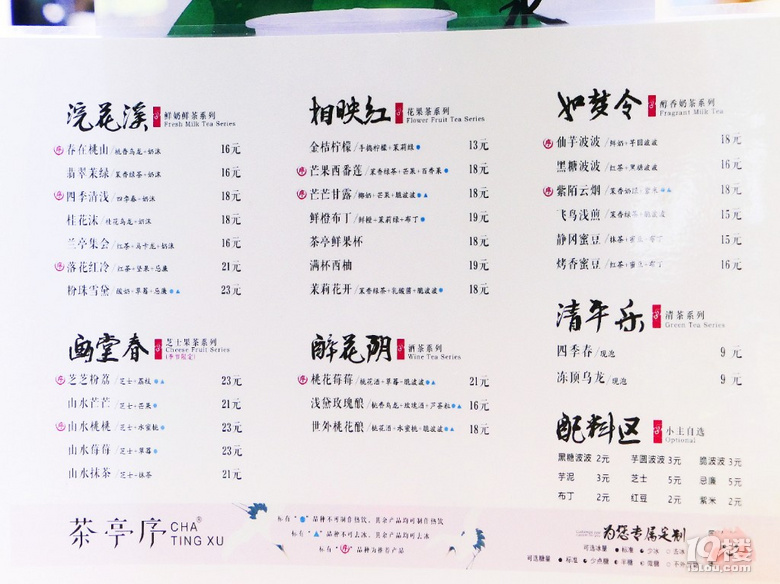 浣花溪 鲜奶鲜茶系列
Fresh Milk Tea Series
春在桃山/桃香乌龙+奶沫 16元
翡翠茉绿/茉香绿茶+奶沫 16元
四季清浅/四季春+奶沫 18元
桂花沫/桂花乌龙+奶沫 18元
兰亭集会/红茶+乌卡龙+奶沫 16元
落花红冷/红茶+坚果+忌廉 21元
粉珠雪黛/酸奶+草莓+忌廉 23元
画堂春 芝士果茶系列
Cheese Fruit Series
(季节限定)
芝芝粉荔/芝士+荔枝 23元
山水芒芒/芝士+芒果 21元
山水桃桃/芝士+水蜜桃 23元
山水莓莓/芝士+草莓 23元
山水抹茶/芝士+抹茶 21元
相映红 花果茶系列
Flower Fruit Tea Series
金桔柠檬/手捣柠檬+茉莉绿 13元
芒果西番莲/茉香绿茶+芒果+百香果 18元
芒芒甘露/椰奶+芒果+脆波波 18元
鲜橙布丁/鲜橙+茉莉绿+布丁 19元
茶亭鲜果杯 18元
满杯西柚 19元
茉莉花开/茉香绿茶+乳酸菌+脆波波 18元
醉花阴 酒茶系列
Wine Tea Series
桃花莓莓/桃花酒+草莓+脆波波 21元
浅黛玫瑰酿/桃香乌龙+玫瑰酒+芦荟粒 16元
世外桃花酿/桃花酒+水蜜桃+脆波波 18元
如梦令 醇香奶茶系列
Fragrant Milk Tea
仙芋波波/鲜奶+芋圆波波 18元
黑糖波波/红茶+黑糖波波 16元
紫陌云烟/茉香奶绿+紫米 18元
飞鸟浅煎/茉香绿茶+脆波波 15元
静冈蜜豆/抹茶+蜜豆+布丁 15元
烤香蜜豆/红茶+蜜豆+布丁 16元
清平乐 清茶系列
Green Tea Series
四季春/现泡 9 元
冻顶乌龙/现泡 9 元
配料区 小主自选
Optional
黑糖波波 2元 芋圆波波 3元 脆波波 3元
芋泥 3元 芝士 5元 忌廉 5元
布丁 2元 红豆 2元 紫米 2元
茶亭序 CHA®
TING XU
标有“●”品种不可制作热饮，其余产品均可制作热饮
标有“▲”品种不可去冰，其余产品均可去冰
标有“荐”品种为推荐产品
为您专属定制
可选冰量 ● 标准 ○ 少冰 ○ 去冰
可选糖量 ● 标准 ● 少点糖 半糖
19楼
19lou.com